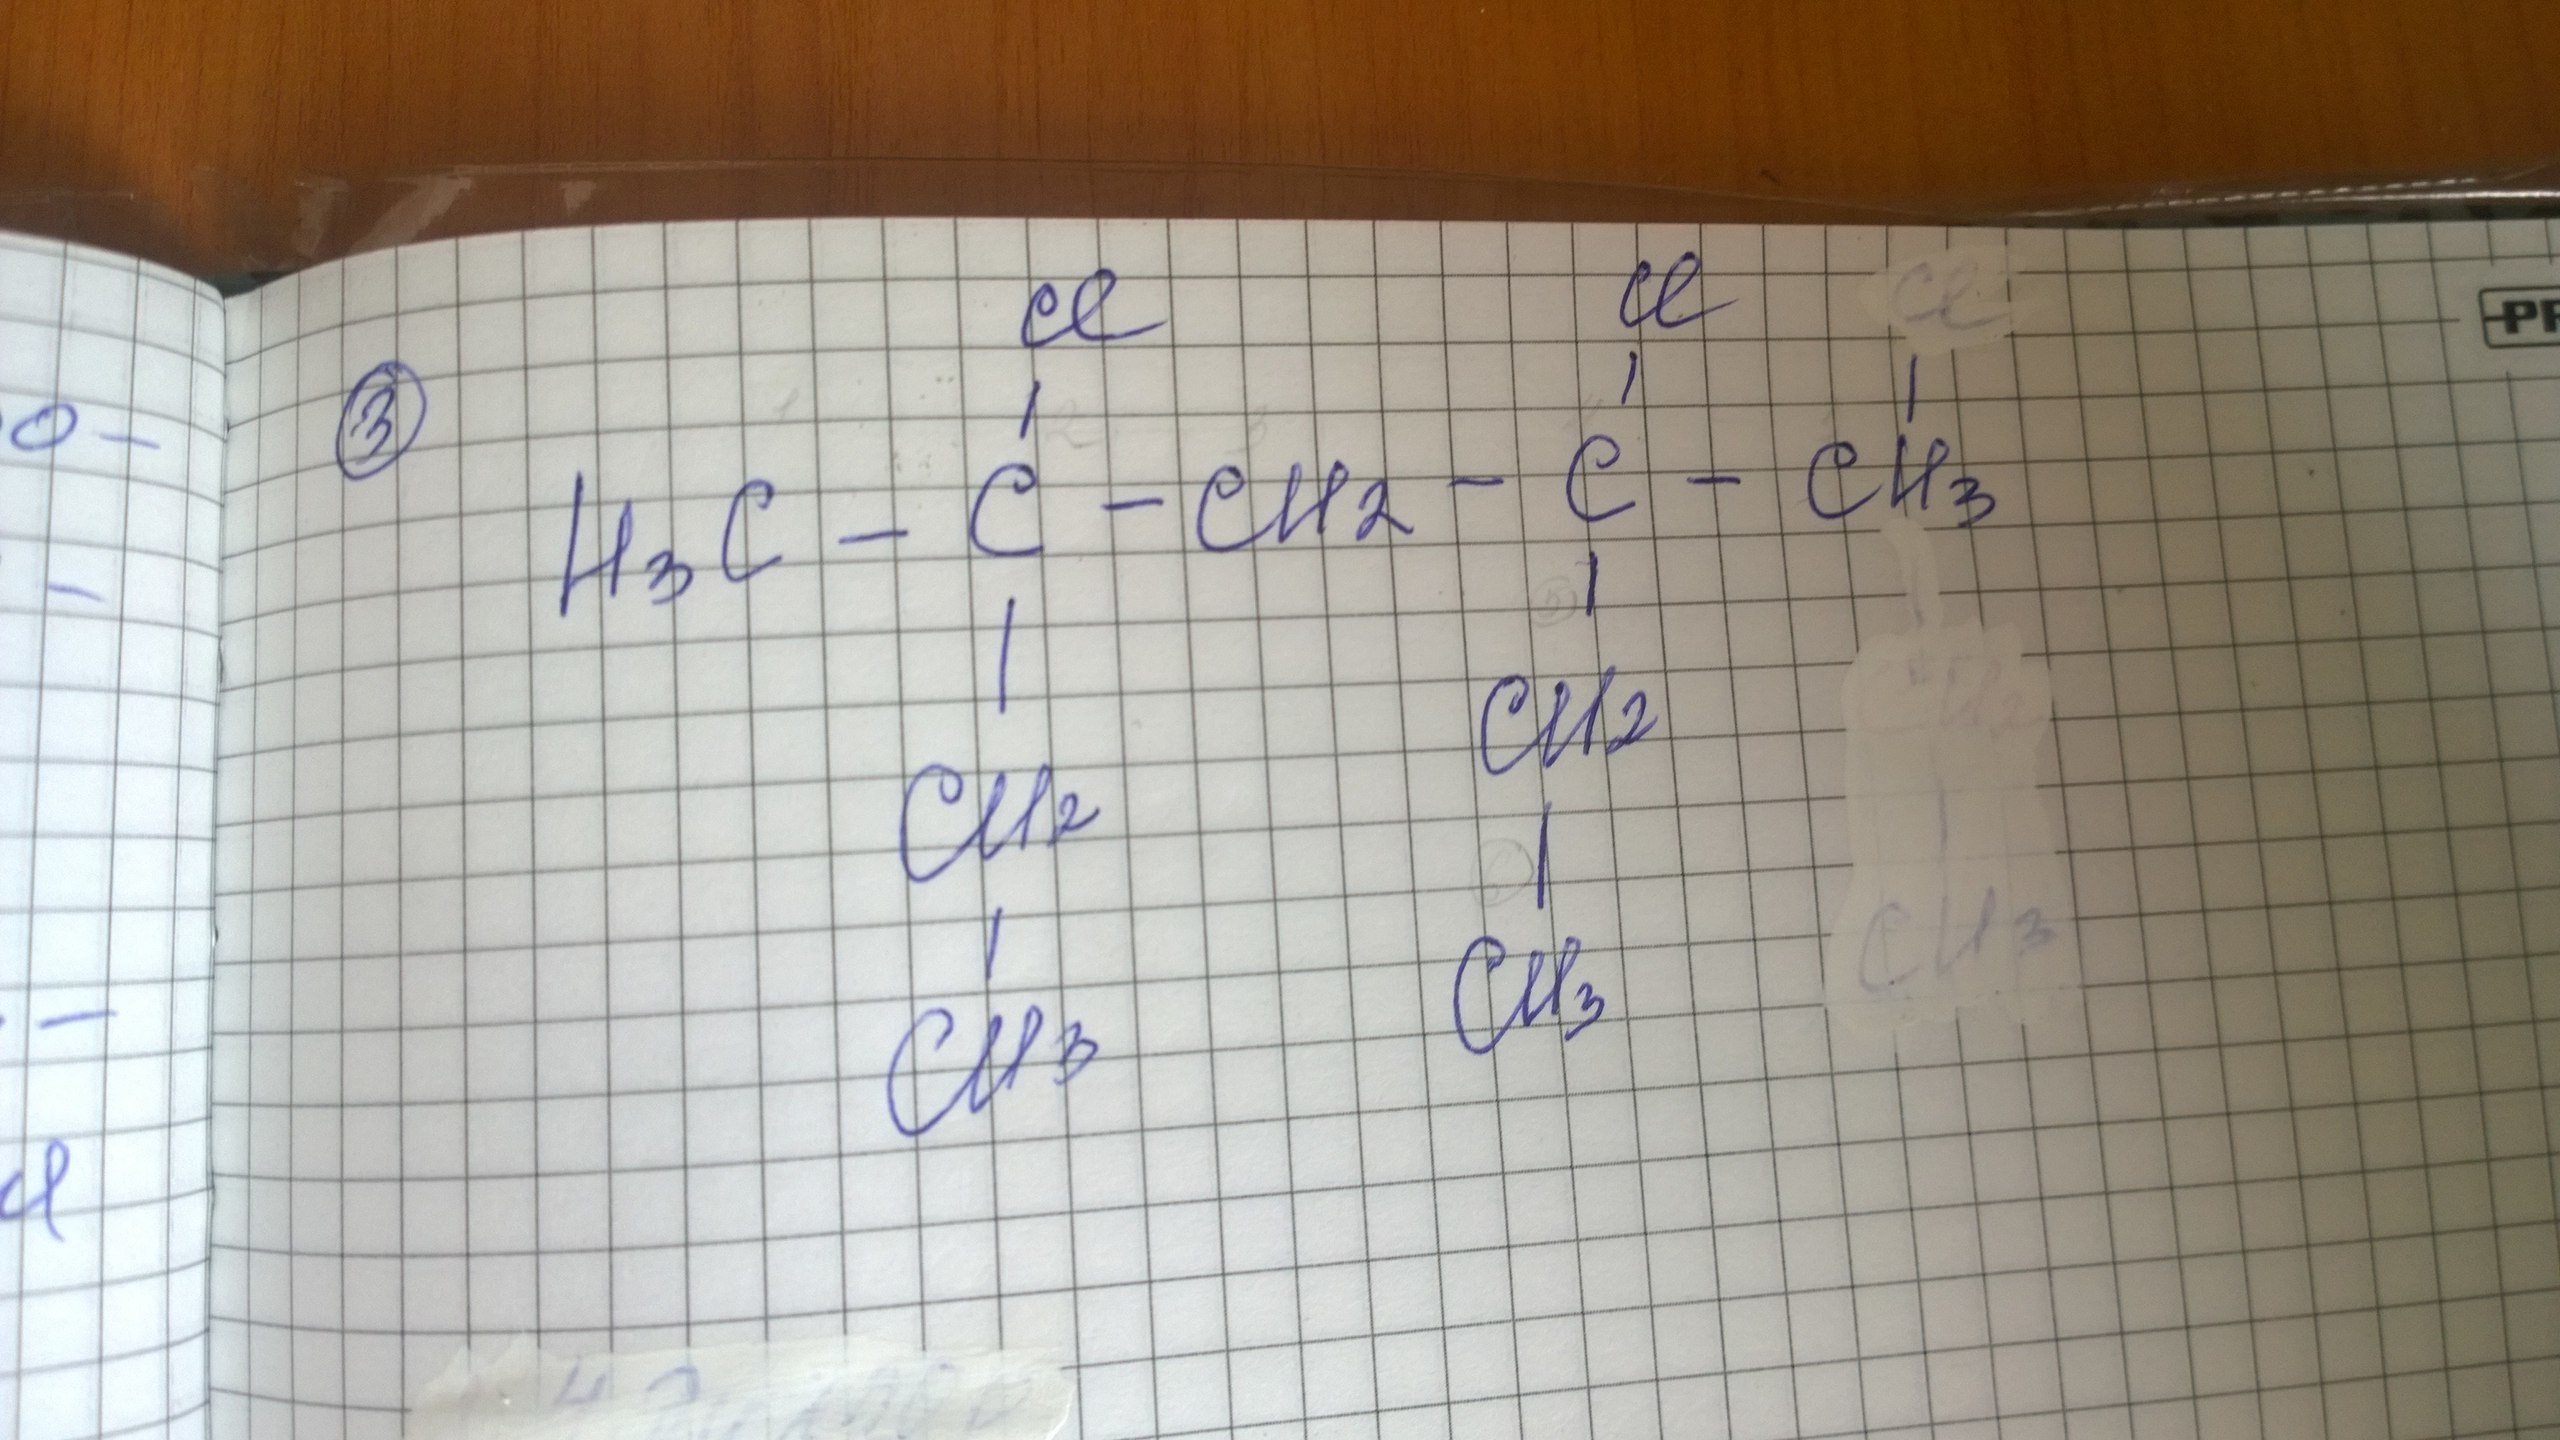 Cl Cl Cl
③ H3C - C - CH2 - C - CH3
CH2 CH2
CH3 CH3 CH3